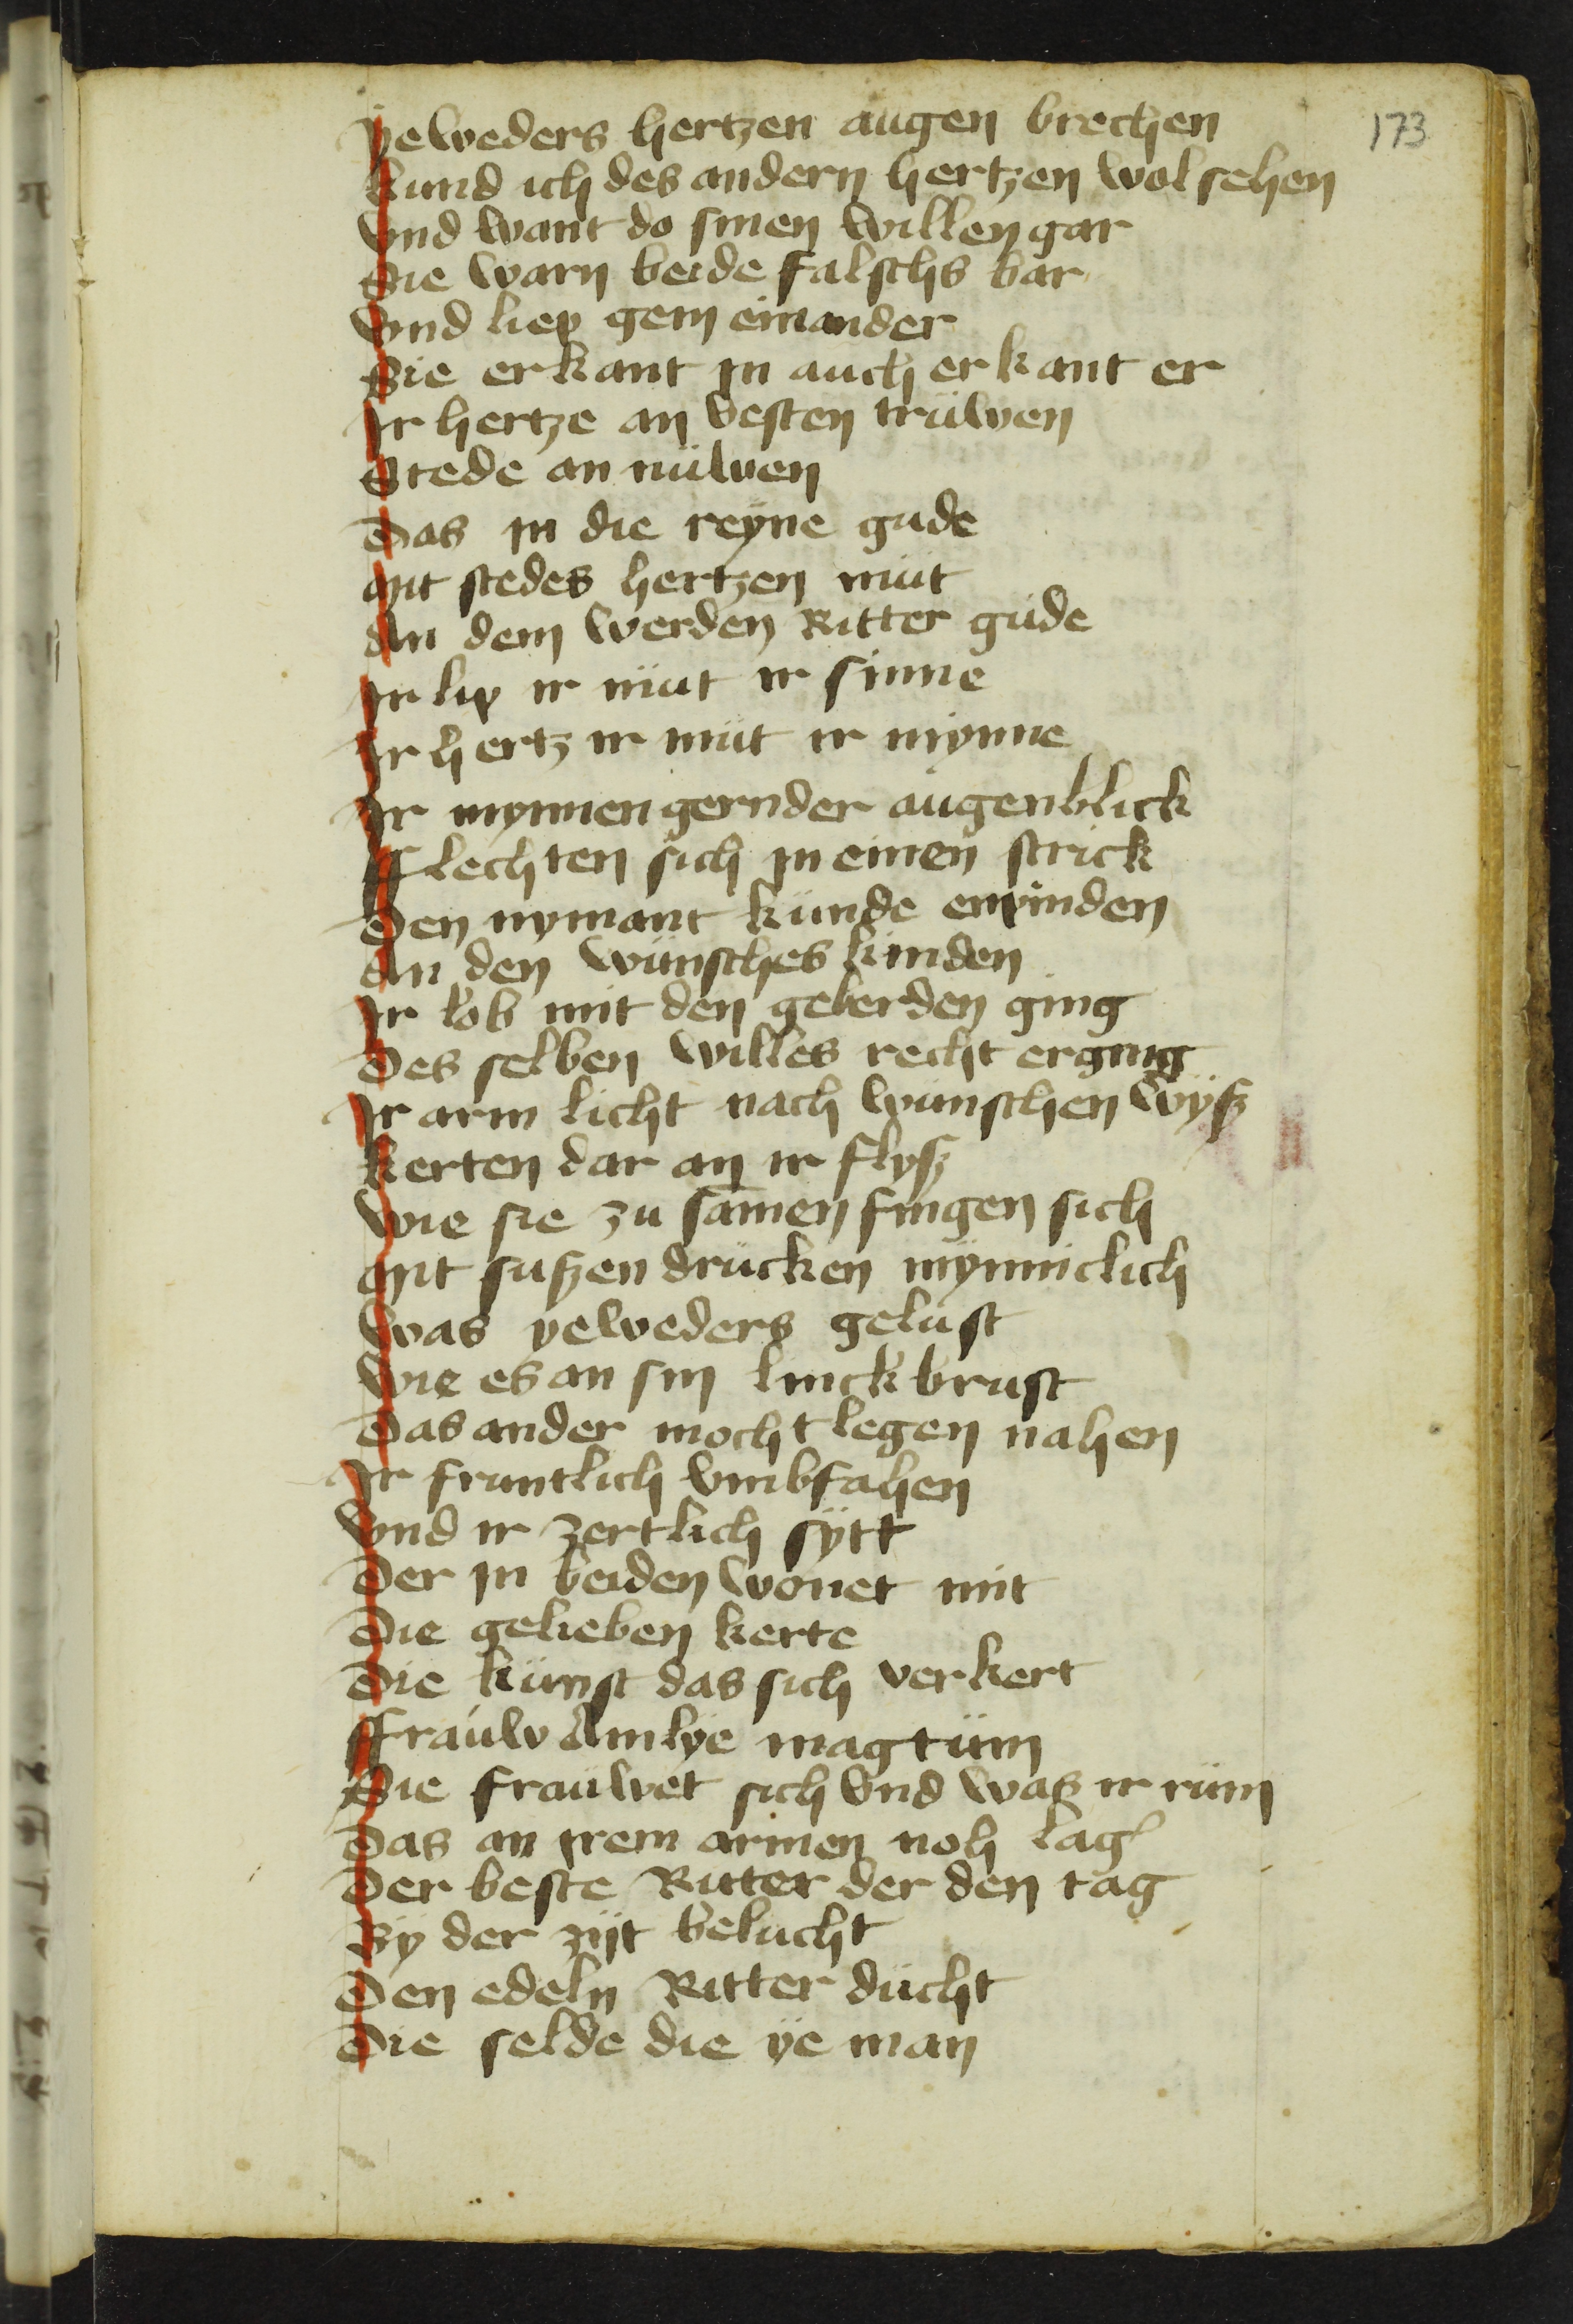 173
yeweders hertzen augen brechen
kund ich des andern hertzen wol sehen
vnd want do sinen willen gar
Sie warn beide falschs bar
vnd liep gein einander
Sie erkant in auch erkant er
Ir hertze an vesten trüwen
Stede an nüwen
Das in die reyne gude
Mit stedes hertzen müt
An dem werden Ritter gude
Ir lip ir müt ir sinne
Ir hertz ir müt ir mynne
Ir mynnen gernder augenblick
fflechten sich in einen strick
Den nymant kunde enpinden
An den wünsches kinden
Ir lob mit den geberden ging
Des selben willes recht erging
Ir arm licht nach wunschen wyß
kerten dar an ir flyß
Wie sie zu samen fingen sich
Mit sußen drücken mynniclich
Was yeweders gelust
Wie es an sin linck brust
Das ander mocht legen nahen
Ir fruntlich vmbfahen
Vnd ir zertlich sytt
Der in beiden wonet mit
Die gelieben kerte
Die kunst das sich verkert
ffrauw Amlye magtum
Die frauwet sich vnd waß ir rum
Das an irem armen noh lag
Der beste Ritter der den tag
By der zijt belucht
Den edeln Ritter dücht
Die selde die ye man